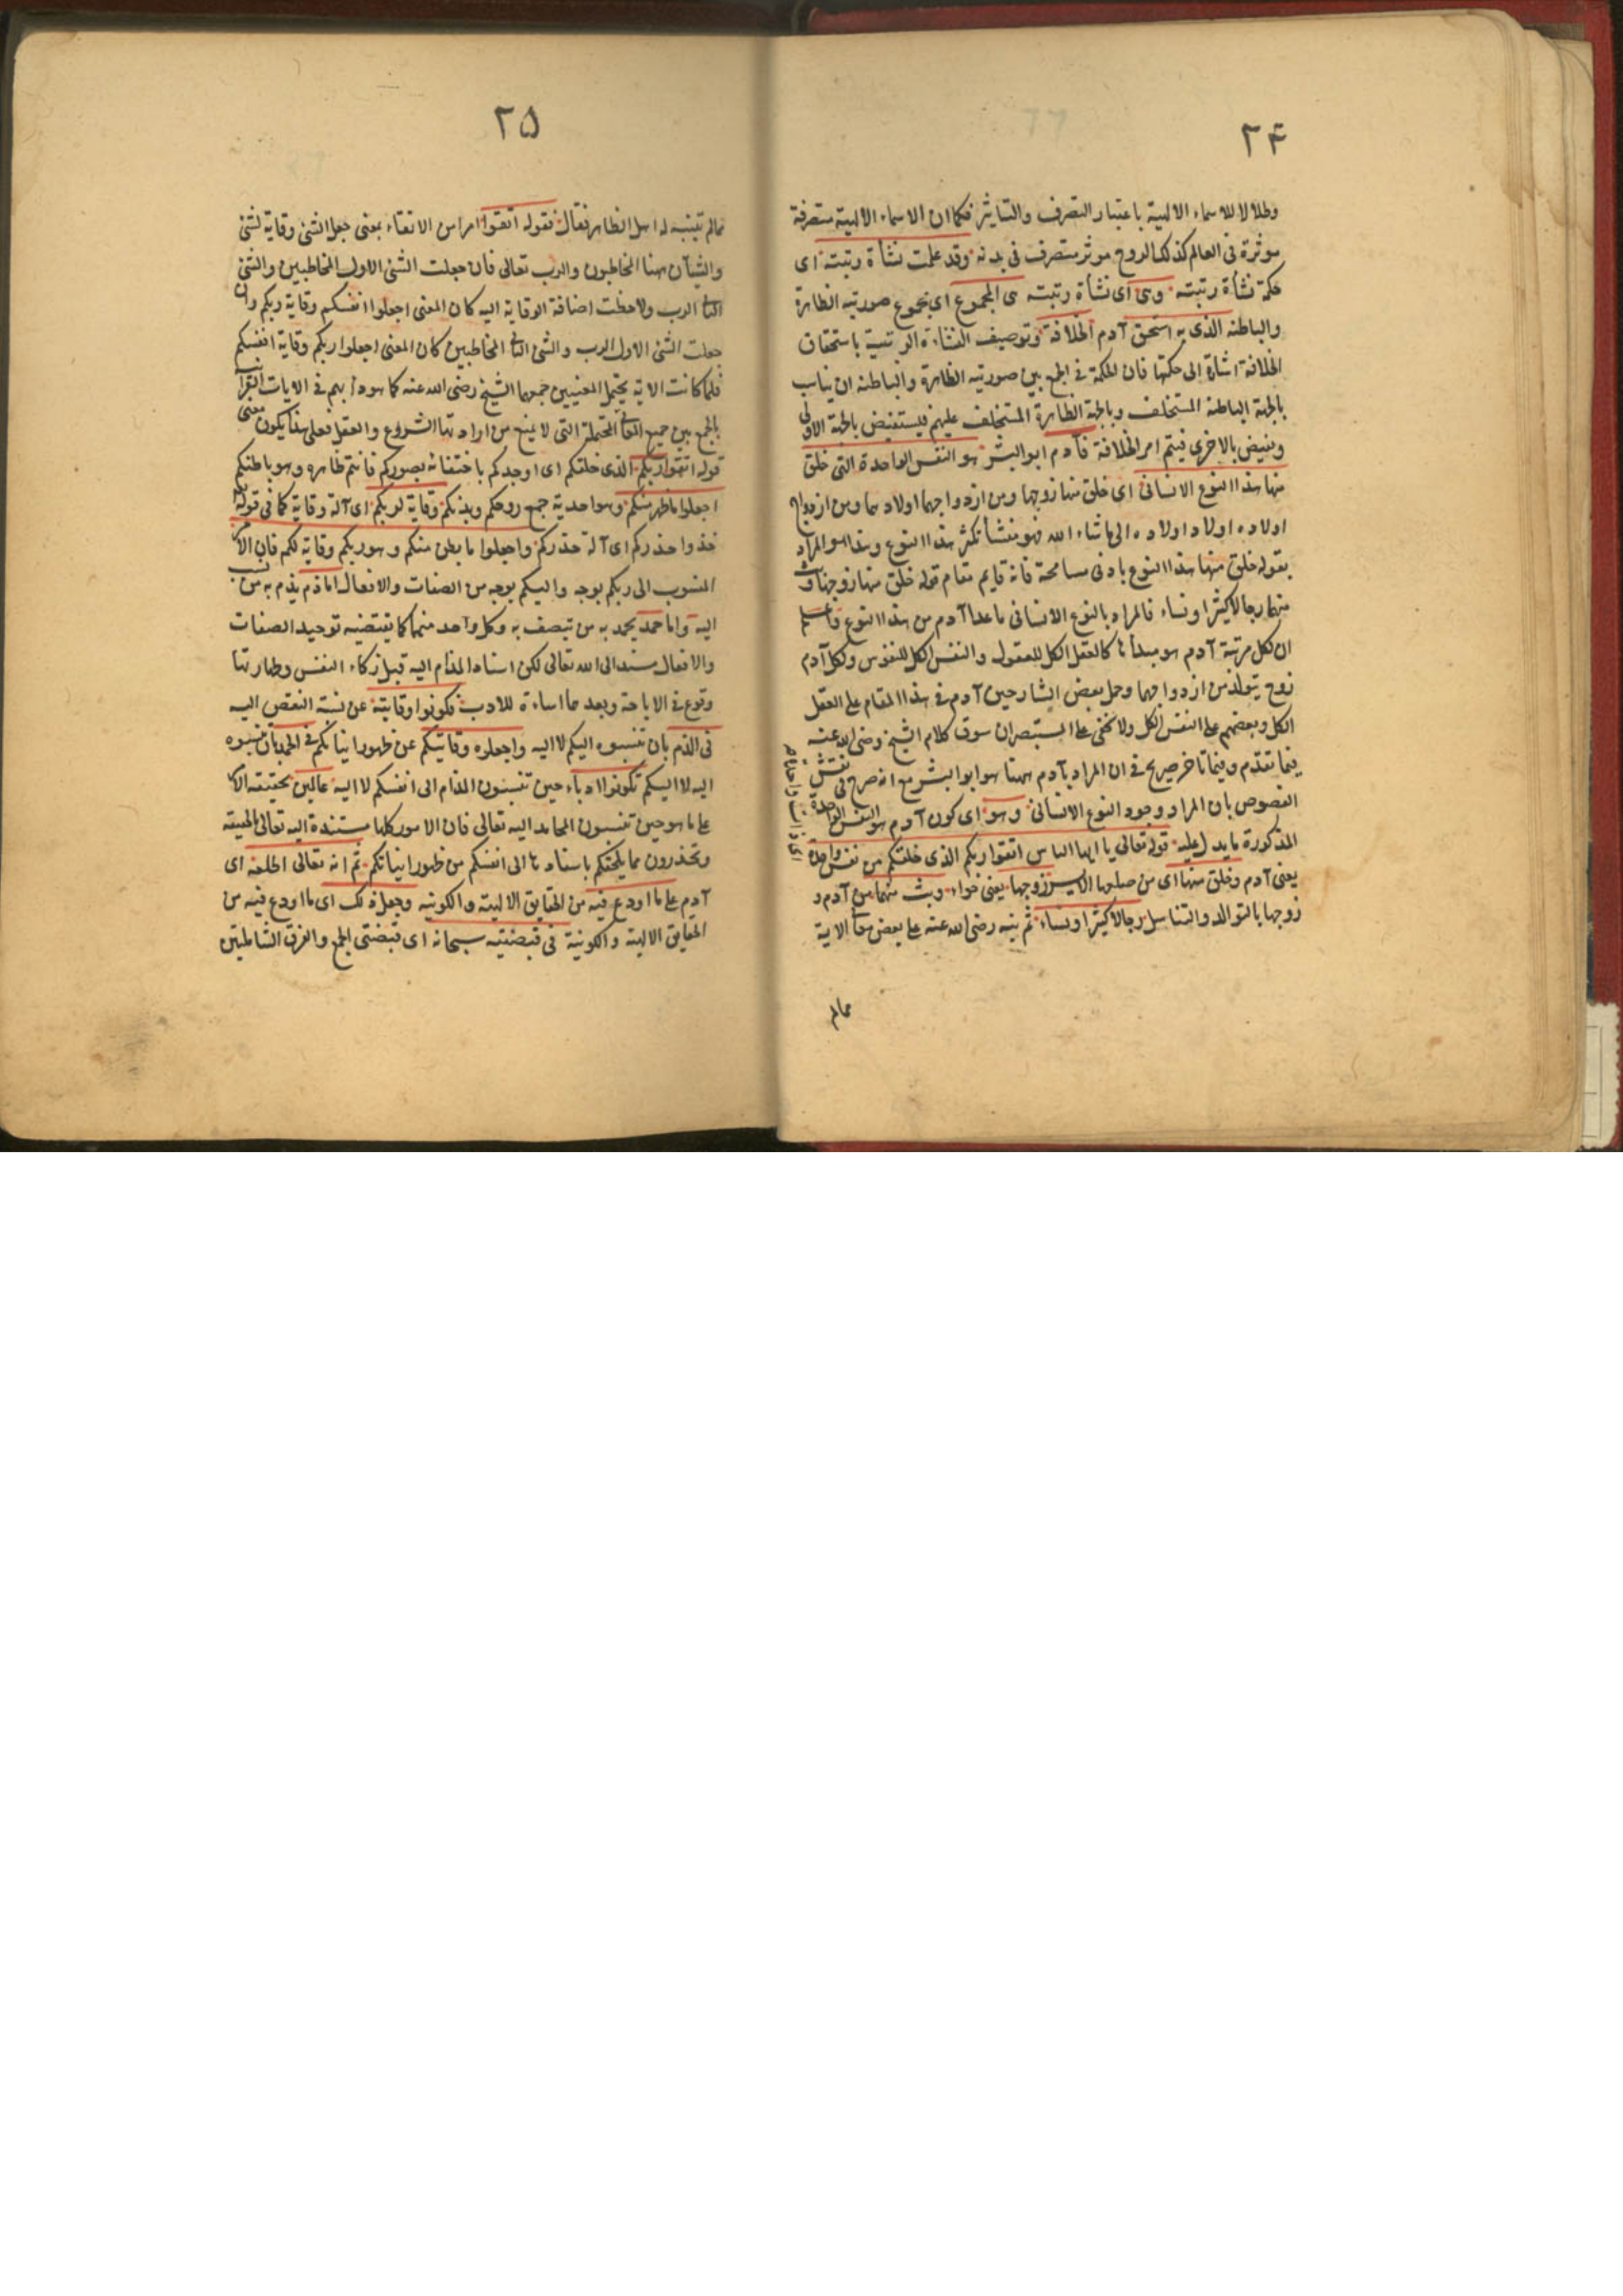 ٢۴
وظلالا للاسماء الالهية باعتبار التصرف والتاثير فكما ان الاسماء الالهية متصرفة
موثرة فى العالم كذلك الروح موثر متصرف فى بدنه وقد علمت نشأة رتبته اى
حكمة نشأة رتبته وهى اى نشأة رتبته هى المجموع اى مجموع صورتيه الظاهرة
والباطنة الذى به استحق آدم الخلافة وتوصيف النشاءة الرتبية باستحقاق
الخلافة اشارة الى حكمتها فان الحكمة فى الجمع بين صورتيه الظاهرة والباطنة ان يناسب
بالجهة الباطنة المستخلف وبالجهة الظاهرة المستخلف عليهم فيستفيض بالجهة الاولى
ويفيض بالاخرى فيتم امر الخلافة فآدم ابو البشر هو النفس الواحدة التى خلق
منها هذا النوع الانسانى اى خلق منها زوجها ومن ازدواجهما اولادهما ومن ازدواج
اولاده اولاد اولاده الى ما شاء الله فهو منشأ تكثر هذا النوع وهذا هو المراد
بقوله خلق منها هذا النوع بادنى مسامحة فانه قايم مقام قوله خلق منها زوجها وبث
منهما رجالا كثيرا ونساء فالمراد بالنوع الانسانى ما عدا آدم من هذا النوع واعلم
ان لكل مرتبة آدم هو مبدأها كالعقل الكل للعقول والنفس الكل للنفوس ولكل آدم
زوج يتولد من ازدواجهما وحمل بعض الشارحين آدم فى هذا المقام على العقل
الكل وبعضهم على النفس الكل ولا يخفى على المستبصر ان سوق كلام الشيخ رضى الله عنه
فيما تقدم وفيما تاخر صريح فى ان المراد بآدم ههنا هو ابو البشر مع انه صرح فى نقش
الفصوص بان المراد وجود النوع الانسانى وهو اى كون آدم هو النفس الواحدة
المذكورة ما يدل عليه قوله تعالى يا ايها الناس اتقوا ربكم الذى خلقكم من نفس واحدة
يعنى آدم وخلق منها اى من ضلعها الايسر زوجها يعنى حواء وبث منهما من آدم و
زوجها بالتوالد والتناسل رجالا كثيرا ونساء ثم نبه رضى الله عنه على بعض معانى الاية
ممالم
٢۵
ممالم يتنبه له اهل الظاهر فقال فقوله اتقوا امر من الاتقاء بمعنى جعل الشئ وقاية لشئ
والشيآن ههنا المخاطبون والرب تعالى فان جعلت الشئ الاول المخاطبين والشئ
الثانى الرب ولاحظت اضافة الوقاية اليه كان المعنى اجعلوا انفسكم وقاية ربكم وان
جعلت الشئ الاول الرب والشئ الثانى المخاطبين كان المعنى اجعلوا ربكم وقاية انفسكم
فلما كانت الاية يحتمل المعنيين جمعهما الشيخ رضى الله عنه كما هو دأبهم فى الايات القرآنية
بالجمع بين جميع المعانى المحتملة التى لا يمنع من ارادتها الشروع والعقل فعلى هذا يكون معنى
قوله اتقوا ربكم الذى خلقكم اى اوجدكم باختفائه بصوركم فانتم ظاهره وهو باطنكم
اجعلوا ما ظهر منكم وهو احدية جمع روحكم وبدنكم وقاية لربكم اى آلة وقاية كما فى قوله تعالى
خذوا حذركم اى آلة حذركم واجعلوا ما بطن منكم وهو ربكم وقاية لكم فان الامر
المنسوب الى ربكم بوجه واليكم بوجه من الصفات والافعال اما ذم يذم به من نسب
اليه واما حمد يحمد به من يتصف به وكل واحد منهما كما يقتضيه توحيد الصفات
والافعال مسند الى الله تعالى لكن اسناد المذام اليه قبل زكاء النفس وطهارتها
وقوع فى الاباحة وبعدهما اساءة للادب فكونوا وقايته عن نسبة النقص اليه
فى الذم بان تنسبوه اليكم لا اليه واجعلوه وقايتكم عن ظهور انياتكم فى الحمد بان تنسبوه
اليه لا اليكم تكونوا ادباء حين تنسبون المذام الى انفسكم لا اليه عالمين بحقيقة الامر
على ما هو حين تنسبون المحامد اليه تعالى فان الامور كلها مستندة اليه تعالى بالحقيقة
وتحذرون مما يلحقكم باسنادها الى انفسكم من ظهور انياتكم ثم انه تعالى اطلعه اى
آدم على ما اودع فيه من الحقايق الالهية والكونية وجعل ذلك اى ما اودع فيه من
الحقايق الالهية والكونية فى قبضتيه سبحانه اى قبضتى الجمع والفرق الشاملتين